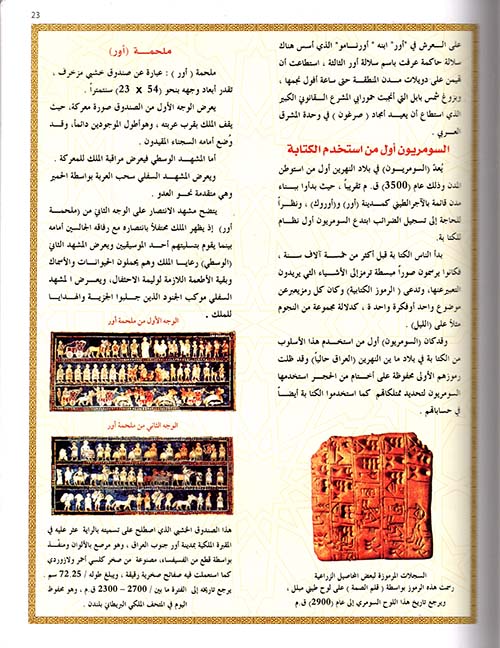 23
على العرش في "أور" ابنه "أورنامو" الذي أسس هناك
سلالة حاكمة عرفت باسم سلالة أور الثالثة ، استطاعت أن
تهيمن على دويلات مدن المنطقة حتى ساعة أفول نجمها ،
وبزوغ شمس بابل التي أنجبت حمورابي المشرع القانوني الكبير
الذي استطاع أن يعيد أمجاد ( صرغون ) في وحدة المشرق
العربي .
السومريون أول من استخدم الكتابة
يُعدّ (السومريون) في بلاد النهرين أول من استوطن
المدن وذلك عام (3500) ق.م تقريباً ، حيث بدأوا ببناء
مدن قائمة بالآجر الطيني كمدينة (أور) و(أوروك) ، ونظراً
للحاجة إلى تسجيل الضرائب ابتدع السومريون أول نظام
للكتابة.
بدأ الناس الكتابة قبل أكثر من خمسة آلاف سنة ،
فكانوا يرسمون صوراً مبسطة ترمز إلى الأشياء التي يريدون
التعبير عنها، وتدعى ( الرموز الكتابية) وكان كل رمز يعبر عن
موضوع واحد أو فكرة واحدة ، كدلالة مجموعة من النجوم
مثلاً على (الليل) .
وقد كان (السومريون) أول من استخدم هذا الأسلوب
من الكتابة في بلاد ما بين النهرين (العراق حالياً) وقد ظلت
رموزهم الأولى محفوظة على أختام من الحجر استخدمها
السومريون لتحديد ممتلكاتهم كما استخدموا الكتابة أيضاً
في حساباتهم .
السجلات المرموزة لبعض المحاصيل الزراعية
رسمت هذه الرموز بواسطة ( قلم القصبة ) على لوح طيني مبلل ،
ويرجع تاريخ هذا اللوح السومري إلى عام (2900) ق.م
ملحمة (أور)
ملحمة ( أور ) : عبارة عن صندوق خشبي مزخرف ،
تقدر أبعاد وجهه بنحو (54 x 23) سنتمتراً .
يعرض الوجه الأول من الصندوق صورة معركة، حيث
يقف الملك بقرب عربته ، وهو أطول الموجودين دائماً، وقد
وُضع أمامه السجناء المقيدون .
أما المشهد الوسطي فيعرض مراقبة الملك للمعركة .
ويعرض المشهد السفلي سحب العربة بواسطة الحمير
وهي متقدمة نحو العدو .
يتضح مشهد الانتصار على الوجه الثاني من (ملحمة
أور) إذ يظهر الملك محتفلاً بانتصاره مع رفاقه الجالسين أمامه
بينما يقوم بتسليتهم أحد الموسيقيين ويعرض المشهد الثاني
(الوسطي) رعايا الملك وهم يحملون الحيوانات والأسماك
وبقية الأطعمة اللازمة لوليمة الاحتفال، ويعرض المشهد
السفلي موكب الجنود الذين جلبوا الجزية والهدايا
للملك .
الوجه الأول من ملحمة أور
الوجه الثاني من ملحمة أور
هذا الصندوق الخشبي الذي اصطلح على تسميته بالراية عثر عليه في
المقبرة الملكية بمدينة أور جنوب العراق ، وهو مرصع بالألوان ومنفّذ
بواسطة قطع من الفسيفساء، مصنوعة من صخر كلسي أحمر ولازوردي
كما استعملت فيه صفائح صخرية رقيقة ، ويبلغ طوله / 72.25 سم .
يرجع تاريخه إلى الفترة ما بين / 2700 – 2300 ق.م ، وهو محفوظ
اليوم في المتحف الملكي البريطاني بلندن .